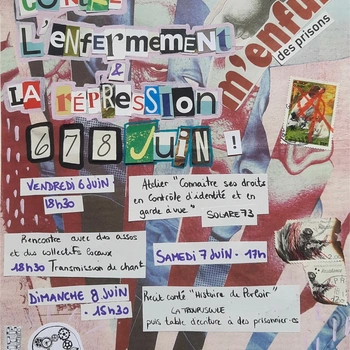 CONTRE
L'ENFERMEMENT
&
LA RÉPRESSION
m'enfui
des prisons
6 7 8 JUIN !
VENDREDI 6 JUIN
18h30
Atelier "Connaître ses droits
en Contrôle d'identité et en
garde à vue"
SOLARE 73
Rencontre avec des assos
et des collectifs locaux
18h30 Transmission du chant
SAMEDI 7 JUIN - 17h
DIMANCHE 8 JUIN
- 15h30
Récit conté "Histoire de Parloir"
LA TROURISQUE
puis table d'écriture à des prisonnier·es